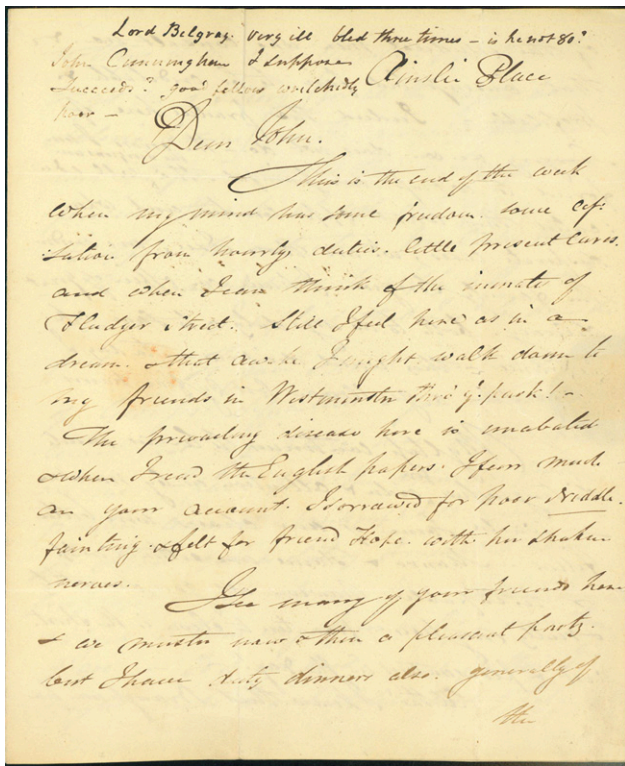 Lord Belgray. very ill bled three times – is he not 80?
John Cunningham I suppose
succeeds? good fellow wretchedly
poor –
Ainslie Place
Dear John.
This is the end of the week
when my mind has some freedom. some ces:
:sation from hourly duties. little present cares.
and when I can think of the inmates of
Fludyer Street. Still I feel here as in a
dream. & that awake I might walk down to
my friends in Westminster thro' ye. park! –
The prevailing disease here is unabated
& when I read the English papers. I fear much
on your account. I sorrowed for poor
fainting. & felt for friend Hope. with her shaken
nerves.
I see many of your friends here
& we muster now & then a pleasant party.
but I have duty dinners also. generally of
the